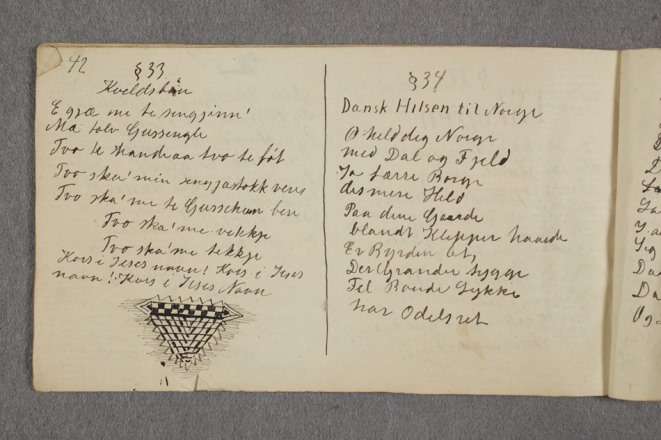 42
§33
Kveldsbøn
E gjæ me te sengjinn!
Mæ tolv Gussengle
Tvo te Handraa tvo te føt
Tvo ska' min sengjastokk vera
Tvo ska' me te Gussehem bera
Tvo ska' me vekkje
Tvo ska' me tekkje
Kors i Jeses navn! Kors i Jeses
navn! Kors i Jeses Navn
§34
Dansk Hilsen til Norge
O held dig Norge
med Dal og Fjeld
Ja færre Borge
des mere Held
Paa dine Gaarde
blandt Klipper haarde
Er Byrden let,
Der Grander bygge
Til Bonde Lykke
har Odelsret